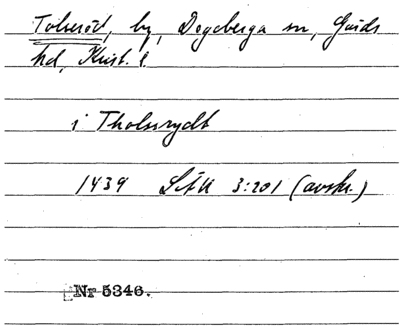 Tolseröd, by, Degeberga sn, Gärds
hd, Krist. l.
i Tholssrydt
1439 SRAH 3:201 (avskr.)
Nr 5346.